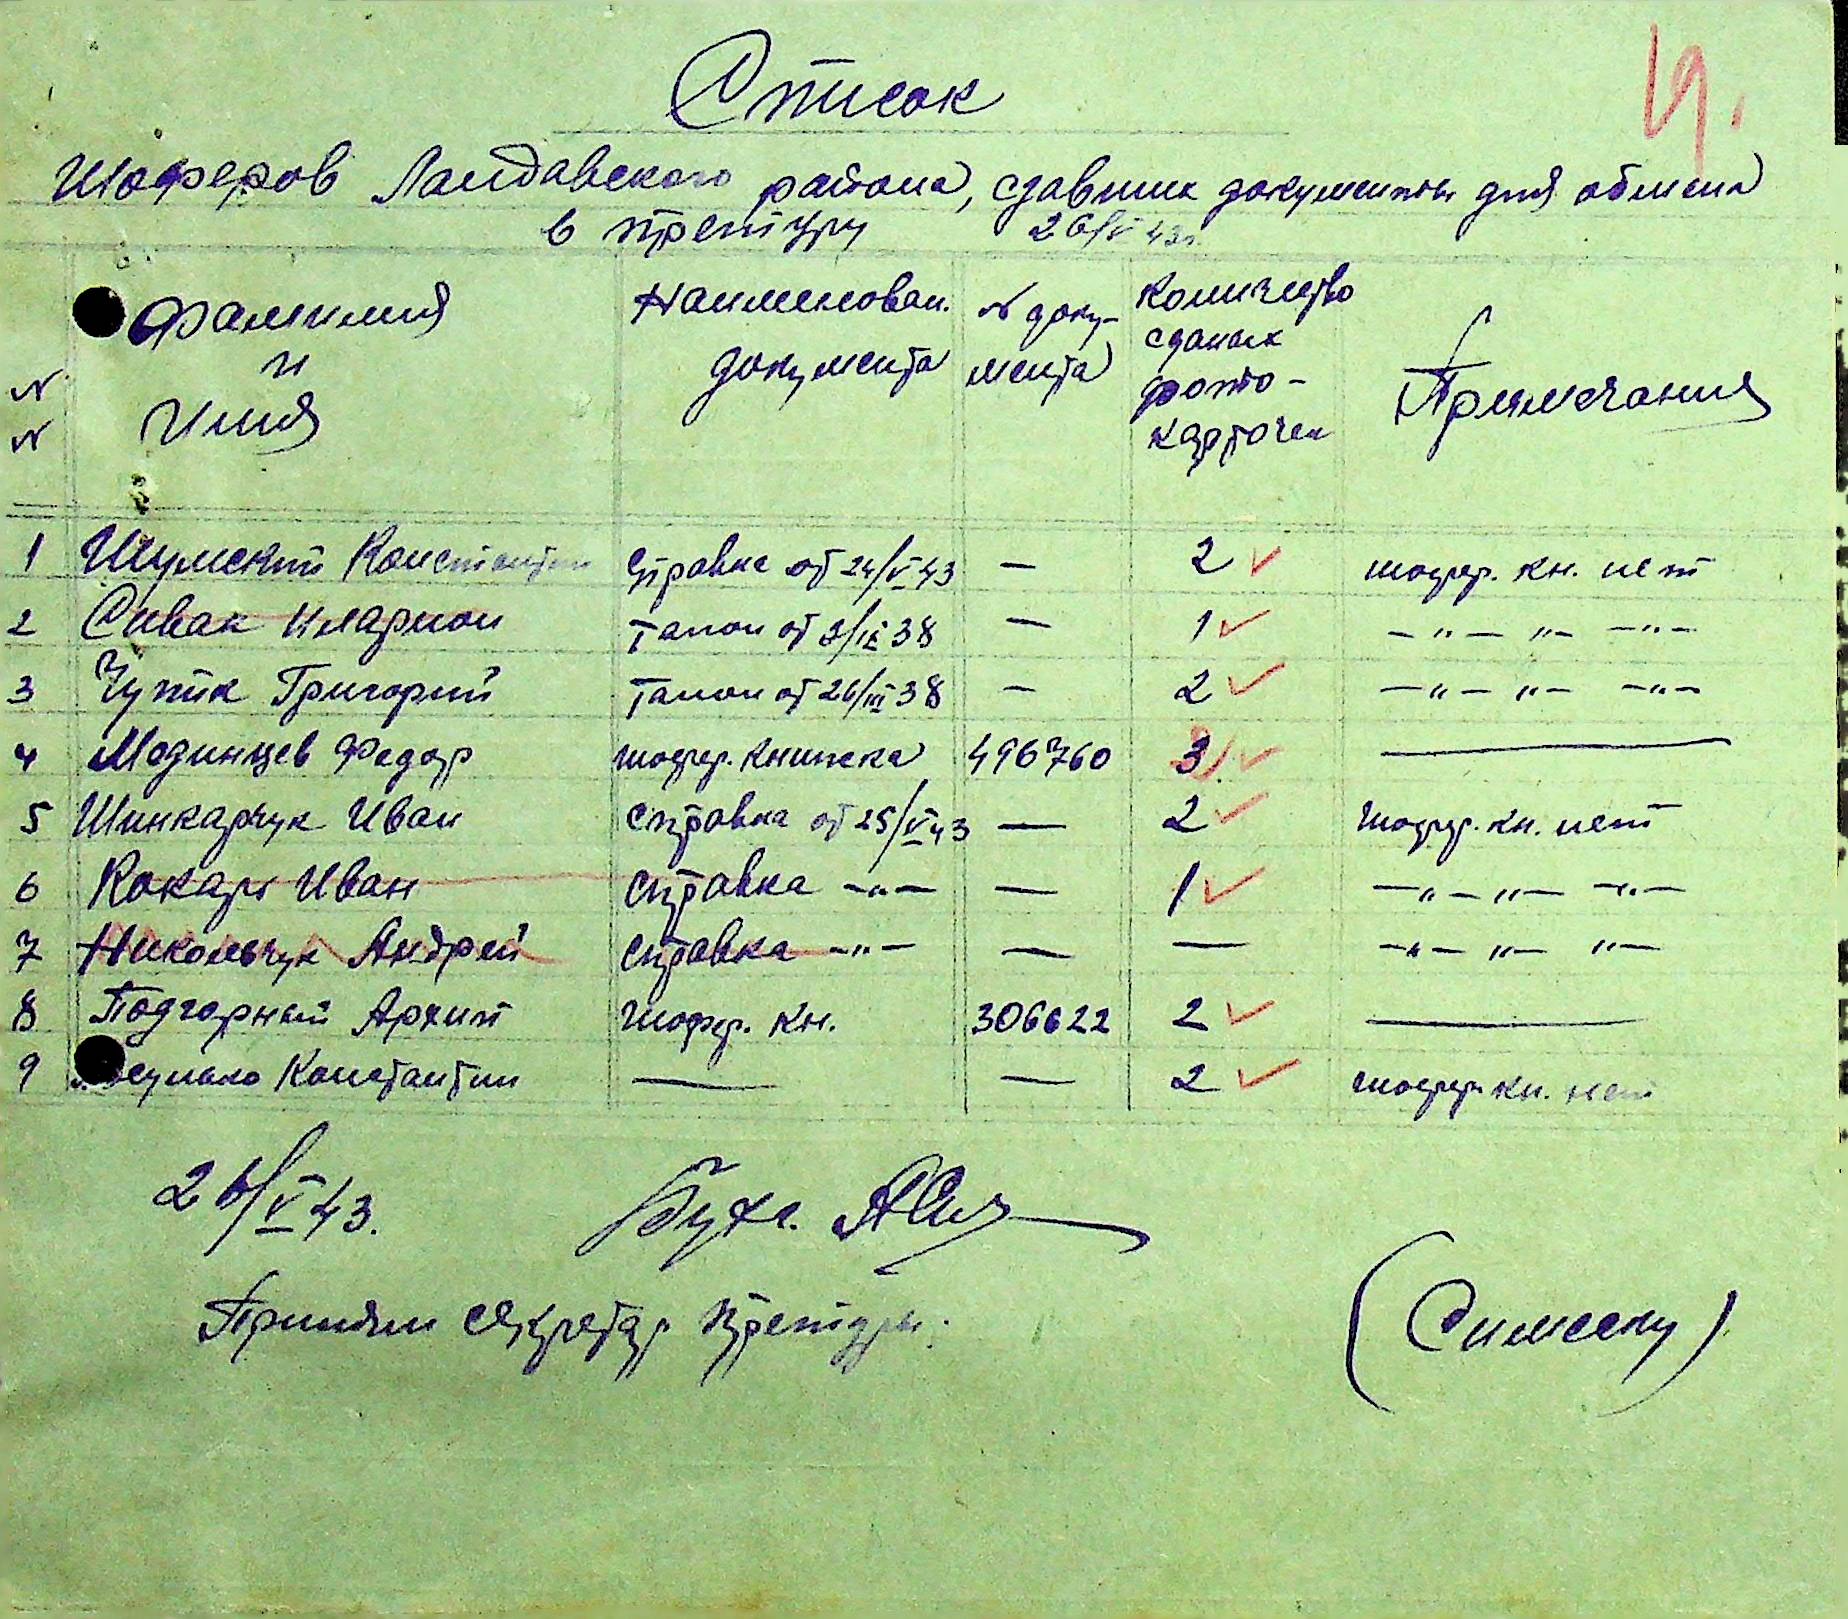 19.
Список
Шоферов Ландавского района, сдавших документы для обмена
в претуру 26/V 43г.
N N
Фамилия и Имя
Наименован. документа
№ документа
Количество сданых фото-карточек
Примечания
1 Шумский Константин Справка от 24/V 43 — 2 шофер. кн. нет
2 Сивак Иларион Талон от 2/IX 38 — 1 —"— "— —"—
3 Чупик Григорий Талон от 26/III 38 — 2 —"— "— —"—
4 Мединцев Федор шофер. книжка 496760 3 —
5 Шинкарчук Иван Справка от 25/V 43 — 2 шофер. кн. нет
6 Кокарь Иван справка —"— — 1 —"—"— —"—
7 Никольчук Андрей справка —"— — — —"— "— "—
8 Подгорный Архип шофер. кн. 306622 2 —
9 Константин — — 2 шофер. кн. нет
26/V 43.
Бухг.
Принял секретар претуры:
(Симеску)